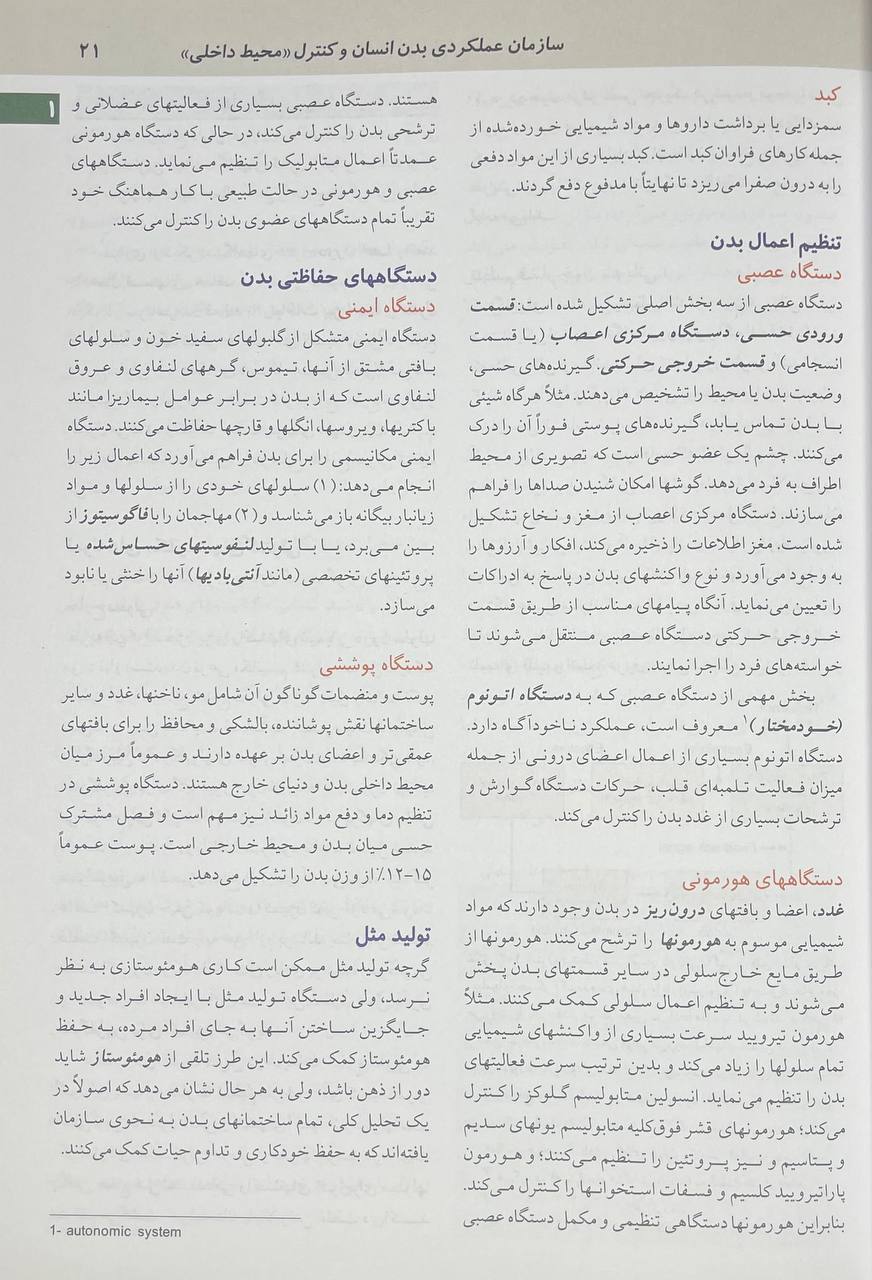 سازمان عملکردی بدن انسان و کنترل «محیط داخلی» ۲۱
۱
کبد
سم‌زدایی یا برداشت داروها و مواد شیمیایی خورده‌شده از
جمله کارهای فراوان کبد است. کبد بسیاری از این مواد دفعی
را به درون صفرا می‌ریزد تا نهایتاً با مدفوع دفع گردند.
تنظیم اعمال بدن
دستگاه عصبی
دستگاه عصبی از سه بخش اصلی تشکیل شده است: قسمت
ورودی حسی، دستگاه مرکزی اعصاب (یا قسمت
انسجامی) و قسمت خروجی حرکتی. گیرنده‌های حسی،
وضعیت بدن یا محیط را تشخیص می‌دهند. مثلاً هرگاه شیئی
با بدن تماس یابد، گیرنده‌های پوستی فوراً آن را درک
می‌کنند. چشم یک عضو حسی است که تصویری از محیط
اطراف به فرد می‌دهد. گوشها امکان شنیدن صداها را فراهم
می‌سازند. دستگاه مرکزی اعصاب از مغز و نخاع تشکیل
شده است. مغز اطلاعات را ذخیره می‌کند، افکار و آرزوها را
به وجود می‌آورد و نوع واکنشهای بدن در پاسخ به ادراکات
را تعیین می‌نماید. آنگاه پیامهای مناسب از طریق قسمت
خروجی حرکتی دستگاه عصبی منتقل می‌شوند تا
خواسته‌های فرد را اجرا نمایند.
بخش مهمی از دستگاه عصبی که به دستگاه اتونوم
(خودمختار)۱ معروف است، عملکرد ناخودآگاه دارد.
دستگاه اتونوم بسیاری از اعمال اعضای درونی از جمله
میزان فعالیت تلمبه‌ای قلب، حرکات دستگاه گوارش و
ترشحات بسیاری از غدد بدن را کنترل می‌کند.
دستگاههای هورمونی
غدد، اعضا و بافتهای درون‌ریز در بدن وجود دارند که مواد
شیمیایی موسوم به هورمونها را ترشح می‌کنند. هورمونها از
طریق مایع خارج‌سلولی در سایر قسمتهای بدن پخش
می‌شوند و به تنظیم اعمال سلولی کمک می‌کنند. مثلاً
هورمون تیرویید سرعت بسیاری از واکنشهای شیمیایی
تمام سلولها را زیاد می‌کند و بدین ترتیب سرعت فعالیتهای
بدن را تنظیم می‌نماید. انسولین متابولیسم گلوکز را کنترل
می‌کند؛ هورمونهای قشر فوق‌کلیه متابولیسم یونهای سدیم
و پتاسیم و نیز پروتئین را تنظیم می‌کنند؛ و هورمون
پاراتیرویید کلسیم و فسفات استخوانها را کنترل می‌کند.
بنابراین هورمونها دستگاهی تنظیمی و مکمل دستگاه عصبی
هستند. دستگاه عصبی بسیاری از فعالیتهای عضلانی و
ترشحی بدن را کنترل می‌کند، در حالی که دستگاه هورمونی
عمدتاً اعمال متابولیک را تنظیم می‌نماید. دستگاههای
عصبی و هورمونی در حالت طبیعی با کار هماهنگ خود
تقریباً تمام دستگاههای عضوی بدن را کنترل می‌کنند.
دستگاههای حفاظتی بدن
دستگاه ایمنی
دستگاه ایمنی متشکل از گلبولهای سفید خون و سلولهای
بافتی مشتق از آنها، تیموس، گرههای لنفاوی و عروق
لنفاوی است که از بدن در برابر عوامل بیماریزا مانند
باکتریها، ویروسها، انگلها و قارچها حفاظت می‌کنند. دستگاه
ایمنی مکانیسمی را برای بدن فراهم می‌آورد که اعمال زیر را
انجام می‌دهد: (۱) سلولهای خودی را از سلولها و مواد
زیانبار بیگانه باز می‌شناسد و (۲) مهاجمان را با فاگوسیتوز از
بین می‌برد، یا با تولید لنفوسیتهای حساس‌شده یا
پروتئینهای تخصصی (مانند آنتی‌بادیها) آنها را خنثی یا نابود
می‌سازد.
دستگاه پوششی
پوست و منضمات گوناگون آن شامل مو، ناخنها، غدد و سایر
ساختمانها نقش پوشاننده، بالشکی و محافظ را برای بافتهای
عمقی‌تر و اعضای بدن بر عهده دارند و عموماً مرز میان
محیط داخلی بدن و دنیای خارج هستند. دستگاه پوششی در
تنظیم دما و دفع مواد زائد نیز مهم است و فصل مشترک
حسی میان بدن و محیط خارجی است. پوست عموماً
۱۵–۱۲٪ از وزن بدن را تشکیل می‌دهد.
تولید مثل
گرچه تولید مثل ممکن است کاری هومئوستازی به نظر
نرسد، ولی دستگاه تولید مثل با ایجاد افراد جدید و
جایگزین ساختن آنها به جای افراد مرده، به حفظ
هومئوستاز کمک می‌کند. این طرز تلقی از هومئوستاز شاید
دور از ذهن باشد، ولی به هر حال نشان می‌دهد که اصولاً در
یک تحلیل کلی، تمام ساختمانهای بدن به نحوی سازمان
یافته‌اند که به حفظ خودکاری و تداوم حیات کمک می‌کنند.
1- autonomic system